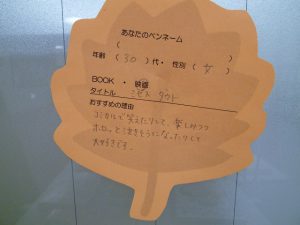 あなたのペンネーム
(　　　　　　　　)
年齢 (30) 代・性別 (女)
BOOK ・ 映画
タイトル ごぜん
おすすめの理由
コミカルで笑えたりして、楽しみつつ
ホロッと泣きそうになったりして
大好きです。